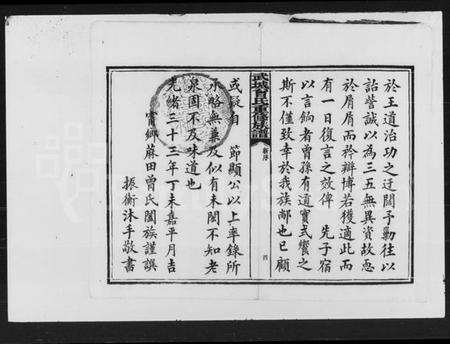 於王道治功之迂闊予勤往以
詒訾誠以為三五無異資故恧
於屑屑而矜辯博若獲適此而
有一日復言之效俾 先子宿
以言餉者曾孫有道實式饗之
斯不僅致幸於我族邮也已顧
武城曾氏重修族譜
新序
四
或疑自 節顯公以上率錄所
承略無兼及似有未閎不知老
泉固不及味道也
光緒三十三年丁未嘉平月吉
甯鄉蔴田曾氏闔族謹譔
振衡沐手敬書